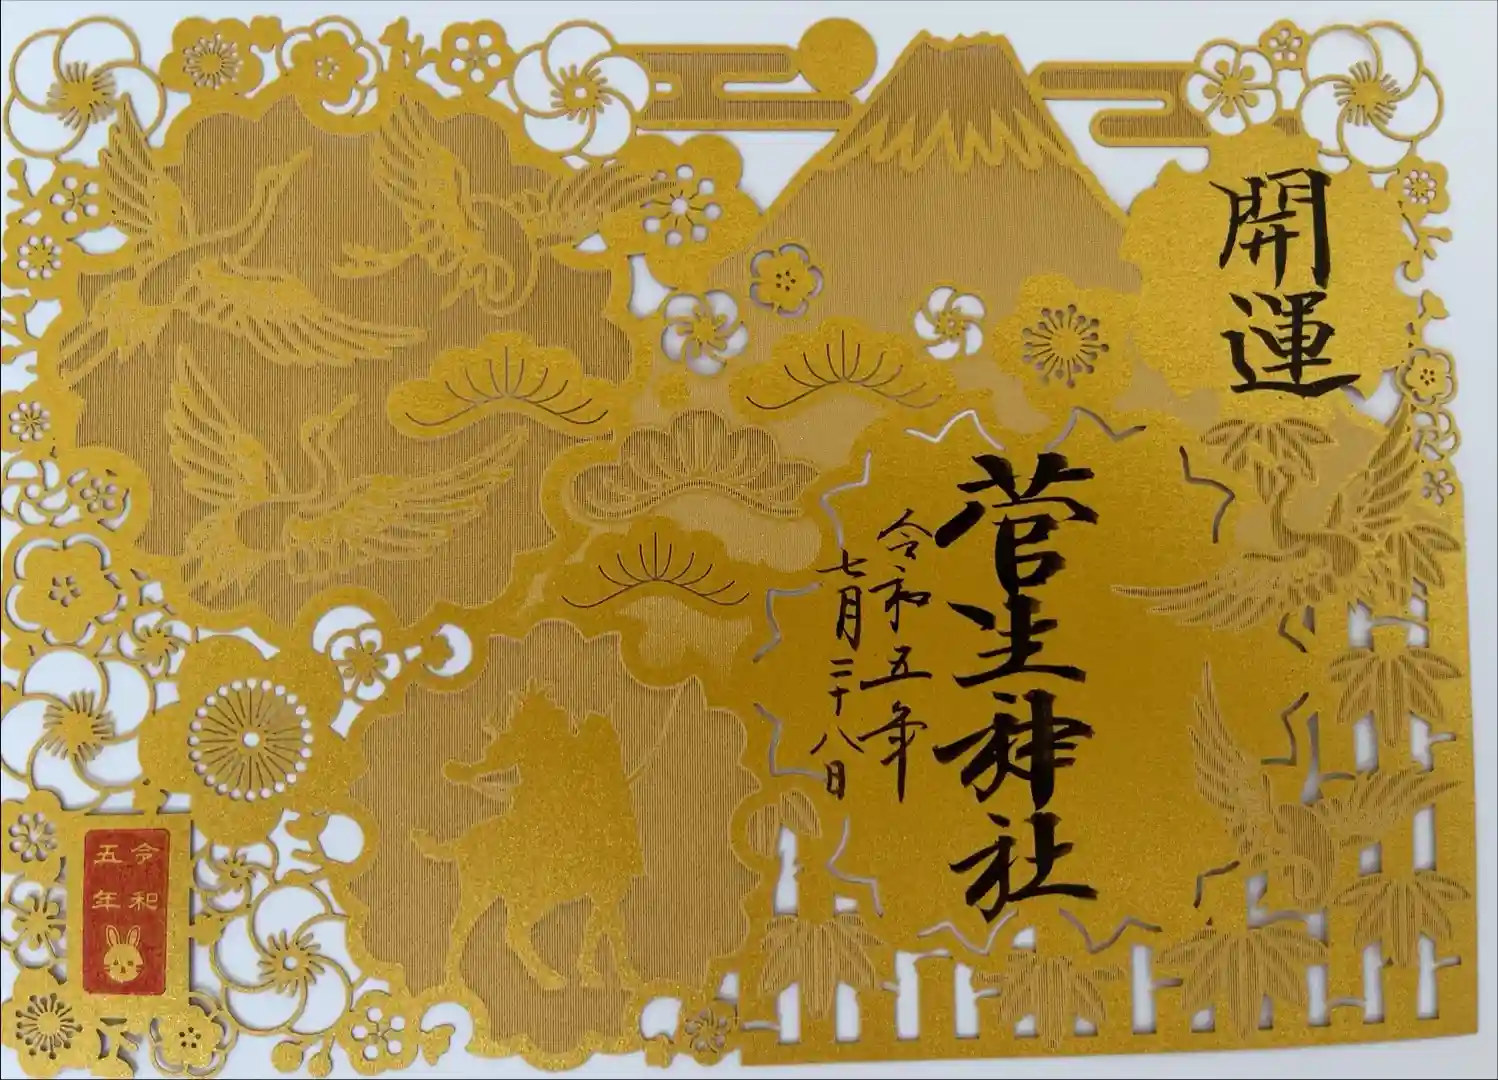 開運
菅生神社
令和五年
七月二十八日
令和
五年